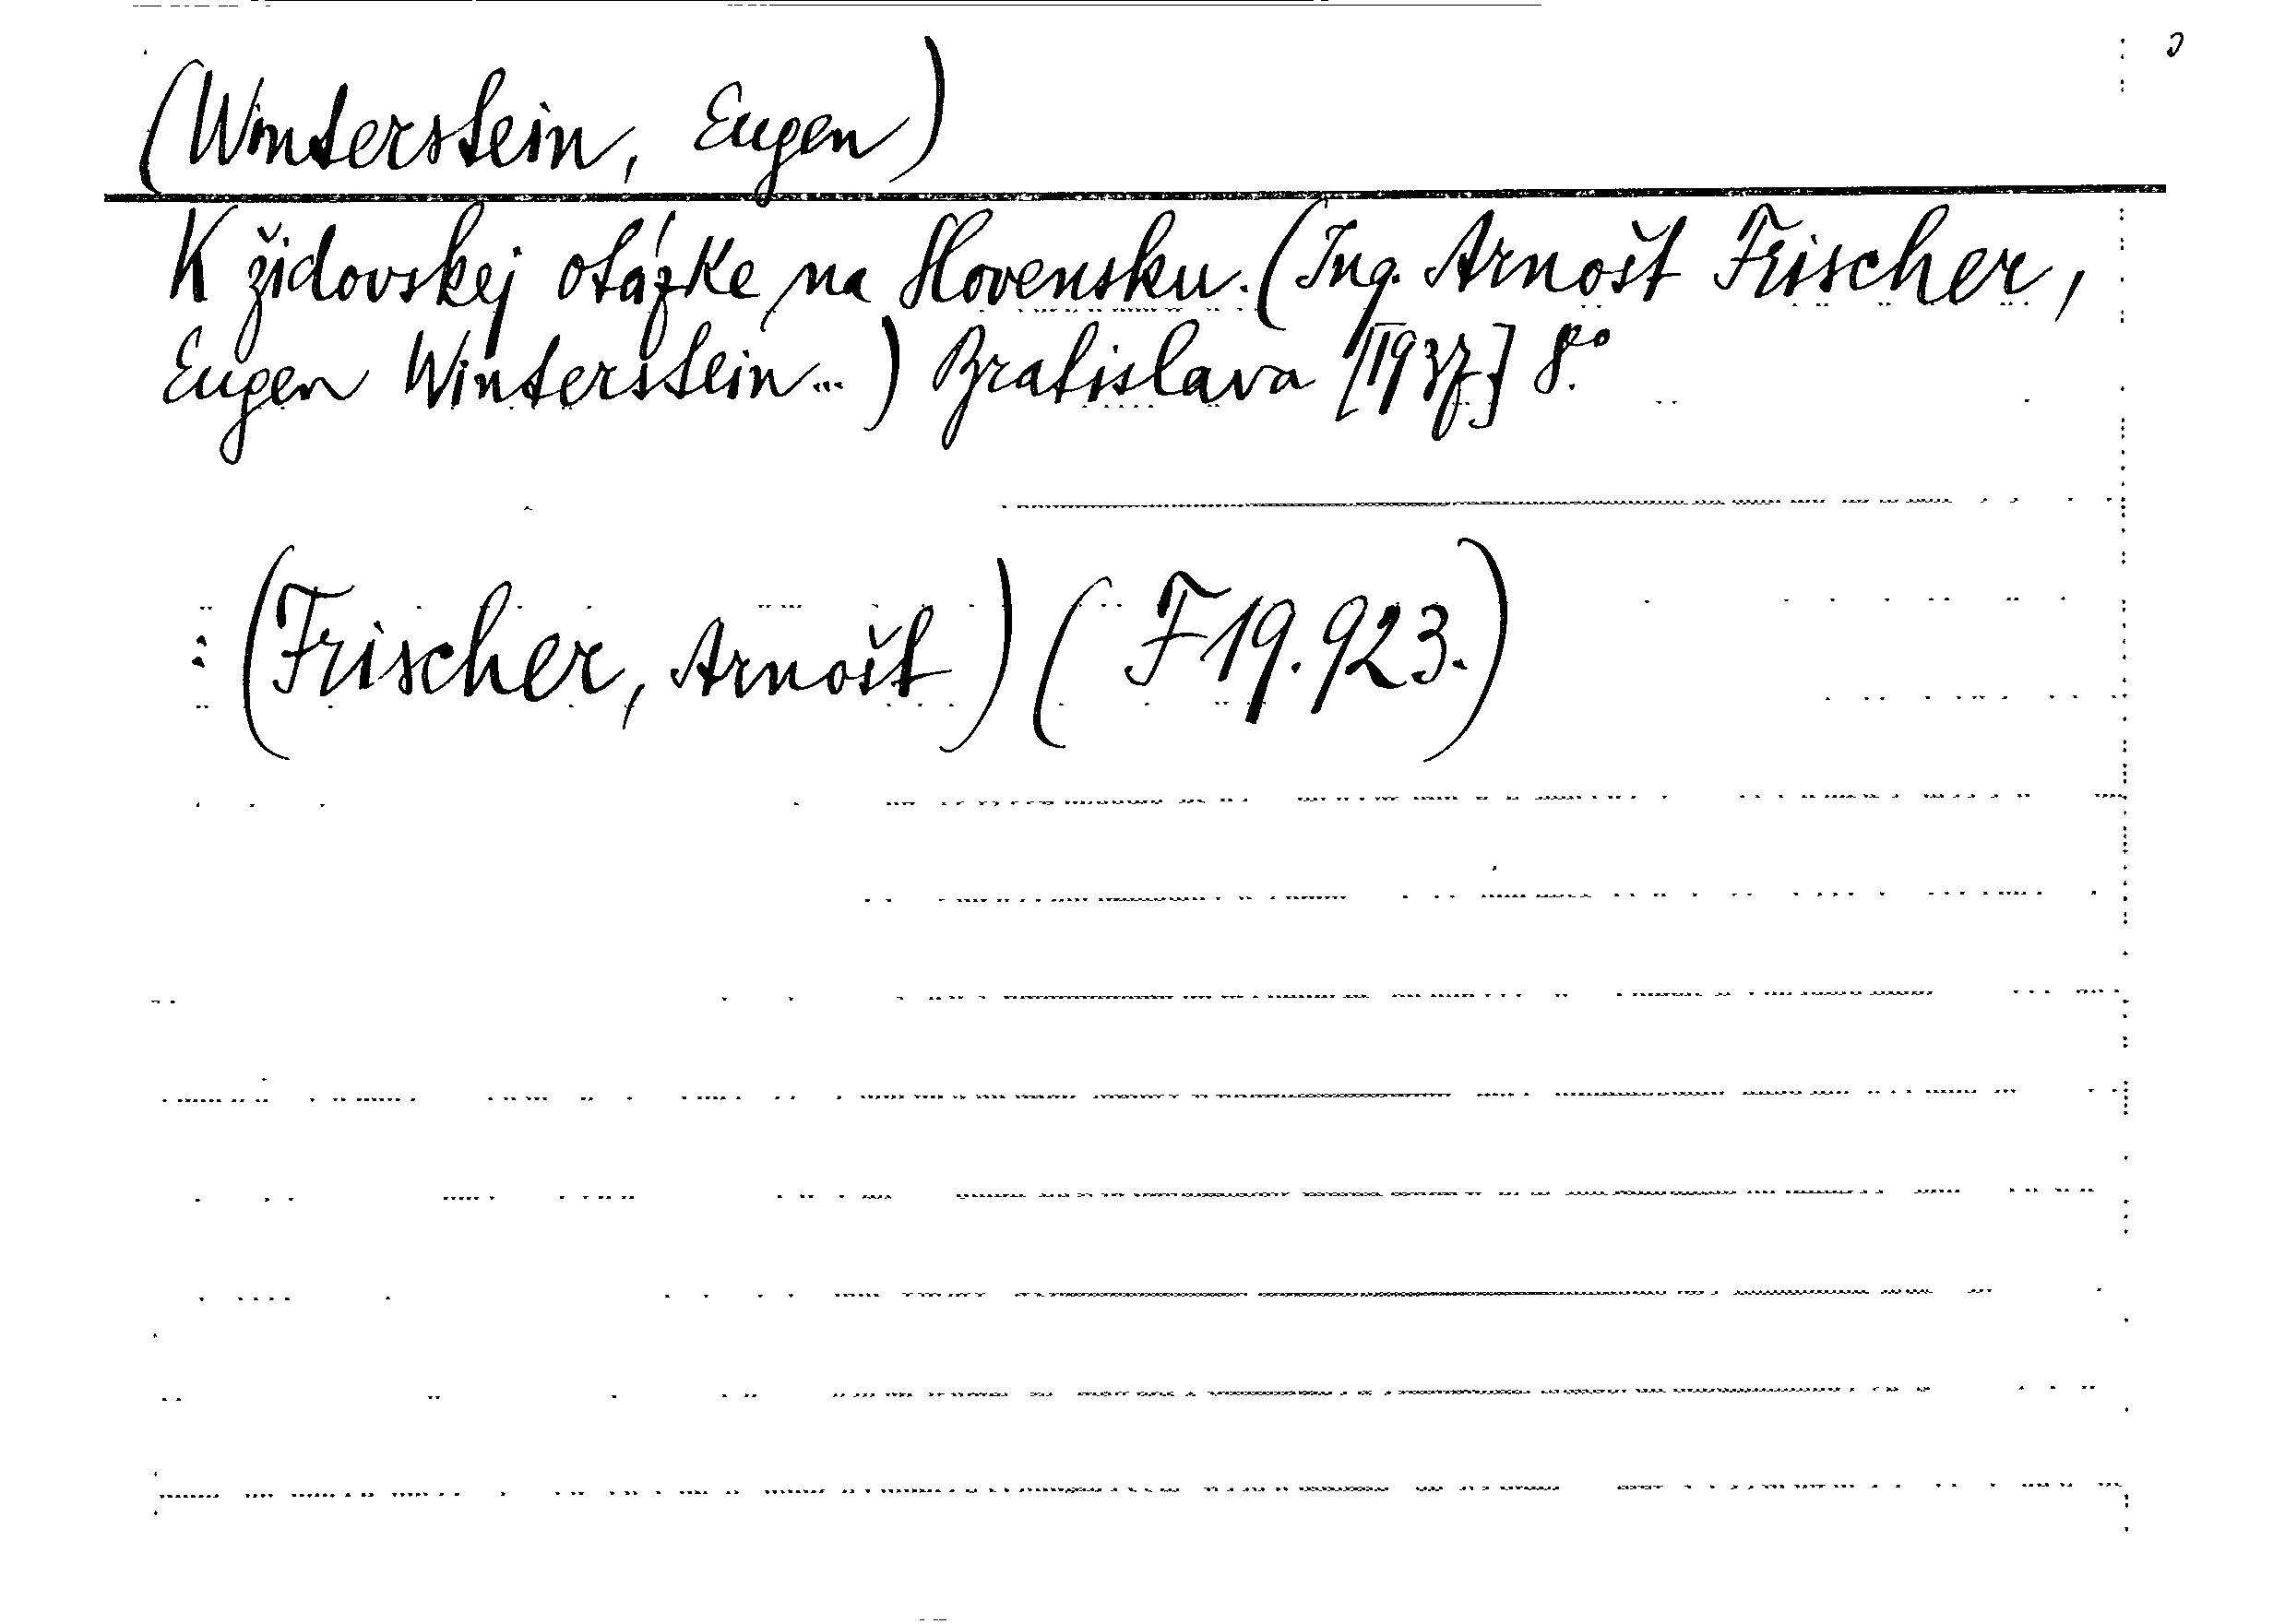 (Winterstein, Eugen)
K židovskej otázke na Slovensku. (Ing. Arnošt Frischer,
Eugen Winterstein...) Bratislava [1937.] 8.°
: (Frischer, Arnošt) (F 19.923.)